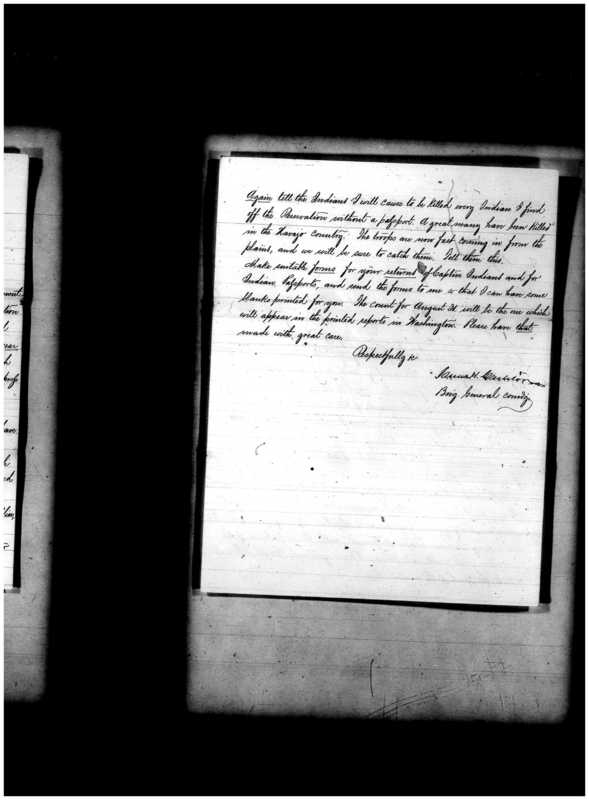 Again tell the Indians I will cause to be killed every Indian I find
off the Reservation without a passport. A great many have been killed
in the Navajo Country. The troops are now fast coming in from the
plains, and we will be sure to catch them. Tell them this.
Make suitable forms for your returns of Captive Indians and for
Indian Passports, and send the forms to me so that I can have some
blanks printed for you. The count for August 31 will be the one which
will appear in the printed reports in Washington. Please have that
made with great care.
Respectfully &c
James H. Carleton
Brig General Comdg